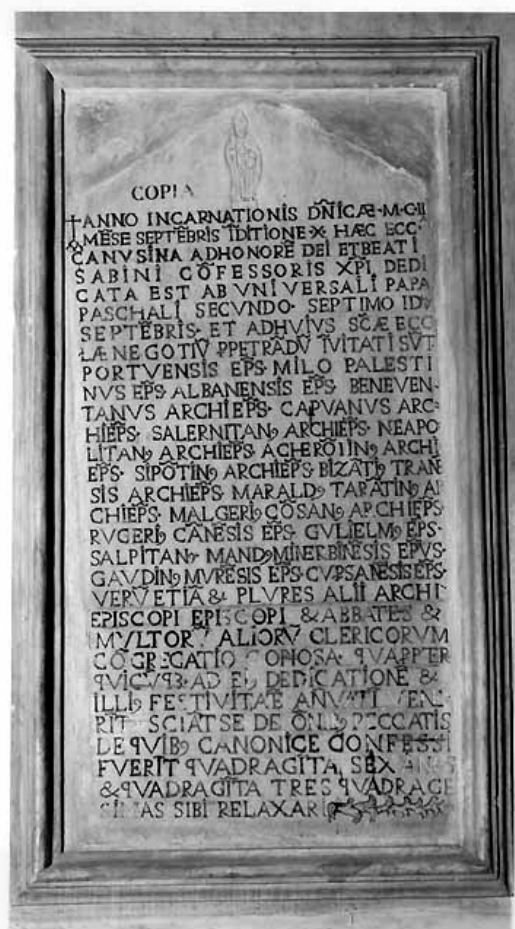 COPIA
ANNO INCARNATIONIS DÑICÆ·M·C·II
MĒSE SEPTĒBRIS ĪDITIONE X HÆC ECC·
CANVSINA ADHONORE DEI ETBEATI
SABINI CŌFESSORIS XP̄I, DEDI
CATA EST ABVNIVERSALI PAPA
PASCHALI SECVNDO· SEPTIMO ID
SEPTĒBRIS· ET ADHVIVS SC̄Æ ECC
LÆ NEGOTIV̄ PPETRĀDV̄ ĪVITATI SV̄T
PORTVENSIS EP̄S· MILO PALESTI
NVS EP̄S· ALBANENSIS EP̄S· BENEVEN-
TANVS ARCHIEP̄S· CAPVANVS ARC-
HIEP̄S· SALERNITANꝰ ARCHIEP̄S· NEAPO
LITANꝰ ARCHIEP̄S· ARCHI
EP̄S· SIPŌTINꝰ ARCHIEP̄S· BIZĀTIꝰ TRAN
SIS ARCHIEP̄S· MARALDꝰ TARĀTINꝰ AR
CHIEP̄S· MALGERIꝰ CŌSANꝰ ARCHIEP̄S·
RVGERIꝰ CĀNESIS EP̄S· GVLIELMꝰ EP̄S·
SALPITANꝰ MANDꝰ MINERBINĒSIS EP̄VS·
GAVDINꝰ MVRĒSIS EP̄S· CVPSANĒSIS EP̄S·
VERV̄ ETIĀ & PLVRES ALII ARCHI
EPISCOPI EPISCOPI & ABBATES &
MVLTORV̄ ALIORV̄ CLERICORVM
CŌGREGATIO COPIOSA· ꟼVAPPTER
ꟼVICV̄ꟼꝫ· AD EI DEDICATIONĒ &
ILLIꝰ FESTIVITAĒ
RIT SCIAT SE DE PECCATIS
DE ꟼVIBꝰ CANONICE CONFESSI
FVERIT ꟼVADRAGĪTA, SEX
& ꟼVADRAGĪTA TRES ꟼVADRAGE
SIMAS SIBI RELAXARI